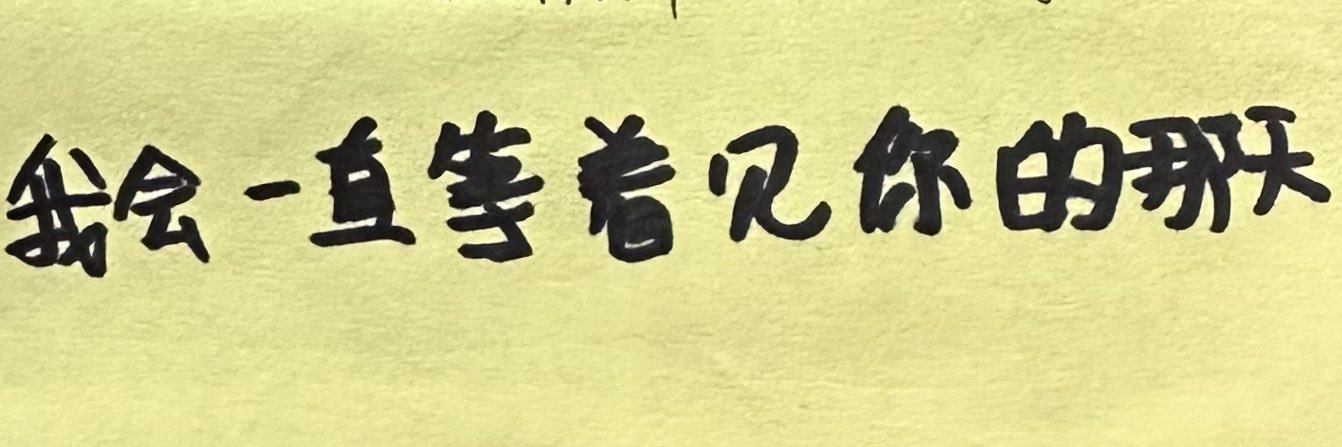 我会一直等着见你的那天